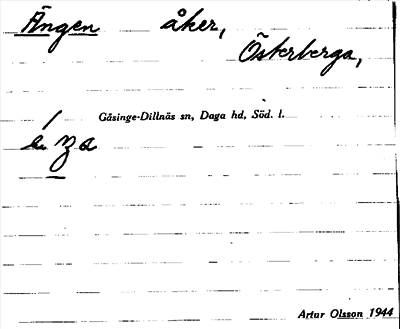 Ängen åker,
Österberga,
Gåsinge-Dillnäs sn, Daga hd, Söd. l.
Artur Olsson 1944